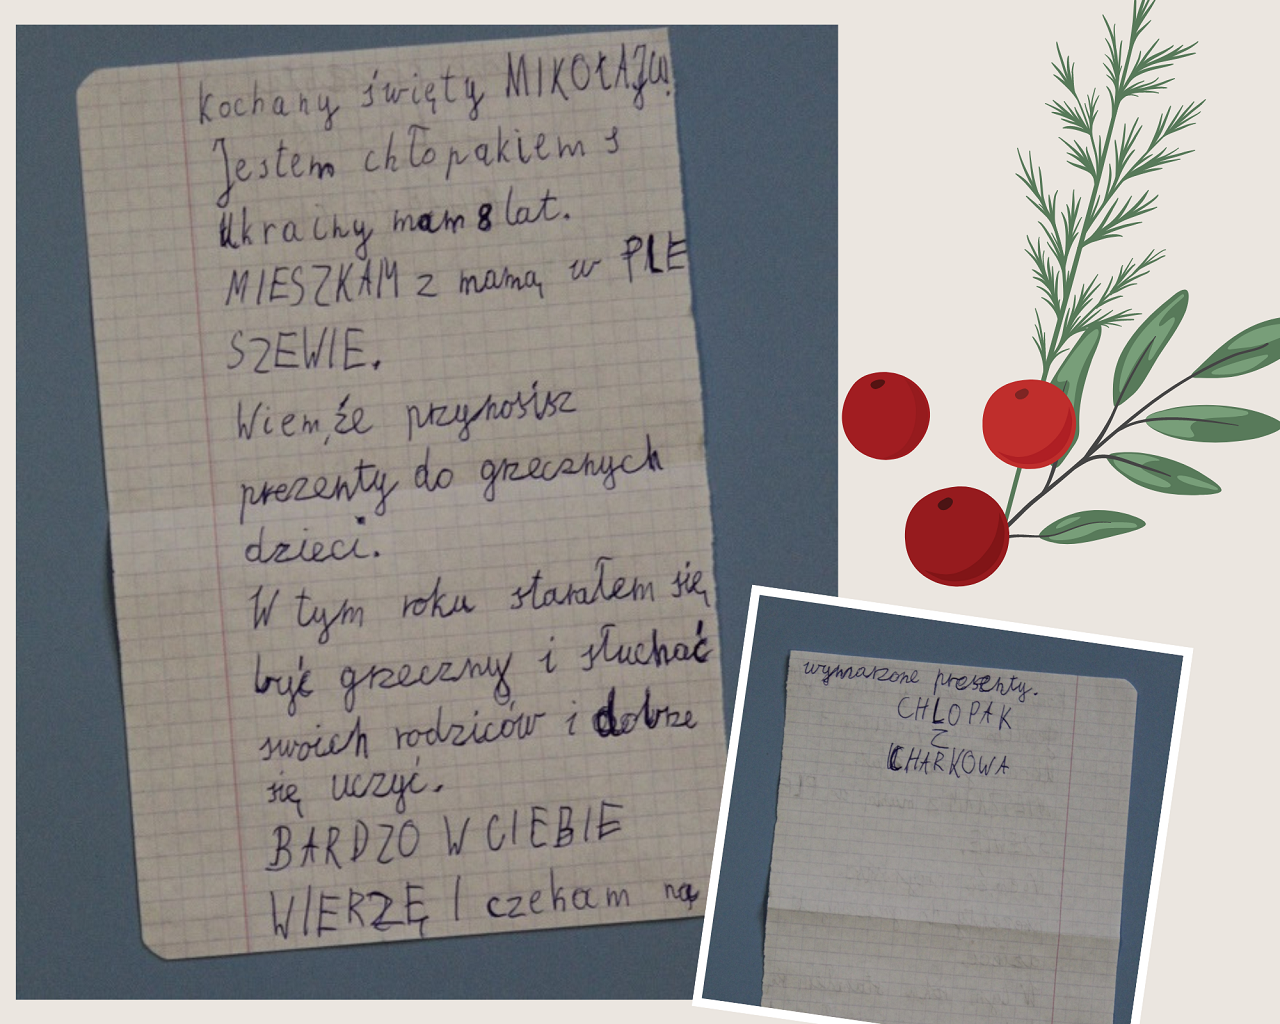 Kochany święty MIKOŁAJU!
Jestem chłopakiem s
Ukrainy mam 8 lat.
MIESZKAM z mamą w PLE
SZEWIE.
Wiem, że przynosisz
prezenty do grzecznych
dzieci.
W tym roku starałem się
być grzeczny i słuchać
swoich rodziców i dobrze
się uczyć.
BARDZO W CIEBIE
WIERZĘ I czekam na
wymarzone prezenty.
CHŁOPAK
Z
CHARKOWA